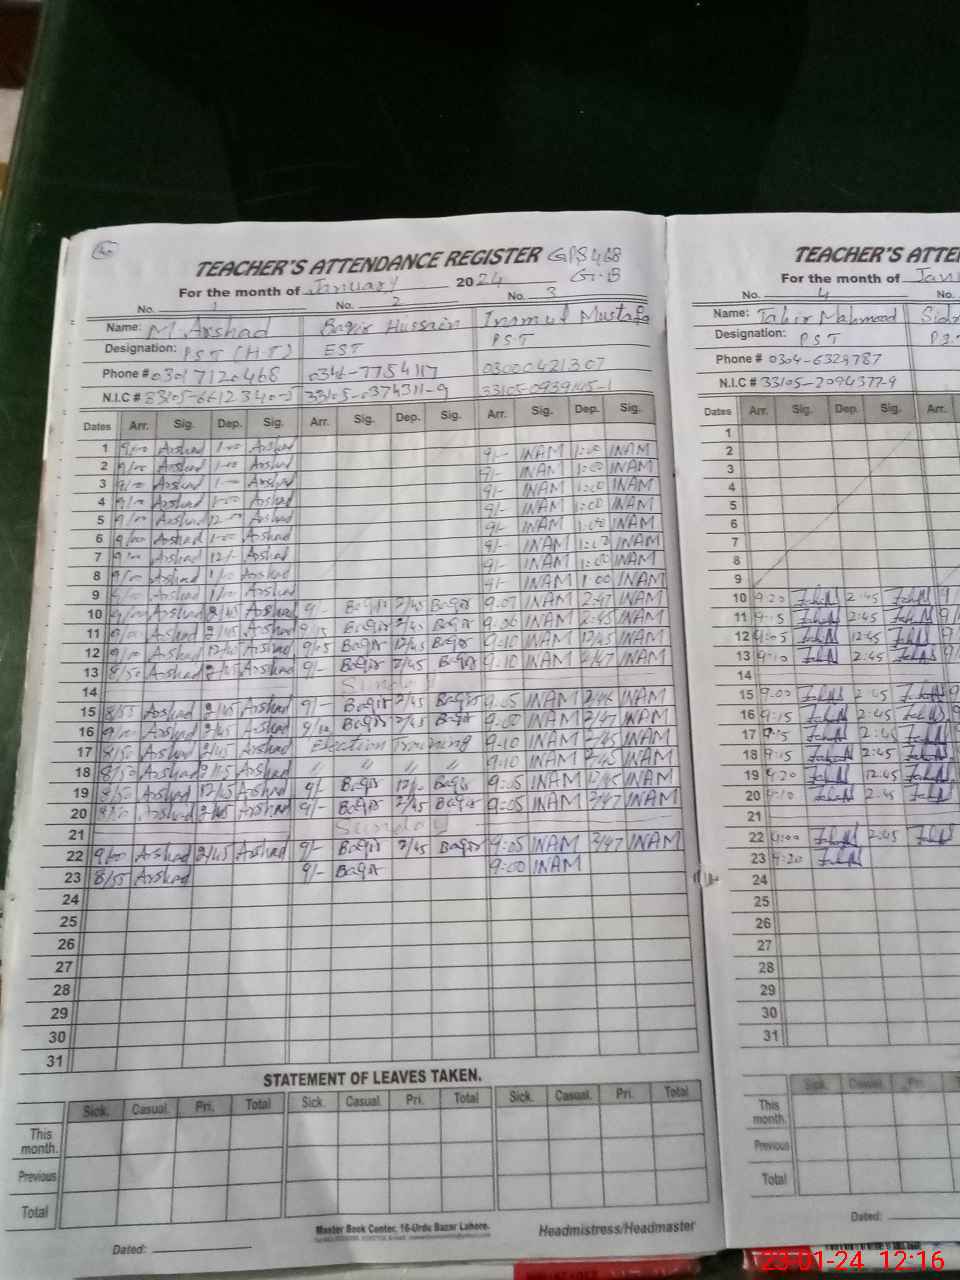 TEACHER'S ATTENDANCE REGISTER GPS 468
For the month of January 2024 G.B
No. 1 No. 2 No. 3
Name: M. Arshad Baqir Hussain Mustafa
Designation: PST (H.T) EST PST
Phone # 03017120468 03000421307
N.I.C #
Dates Arr. Sig. Dep. Sig. Arr. Sig. Dep. Sig. Arr. Sig. Dep. Sig.
1 9/00 Arshad 1-00 Arshad 9/- INAM 1:00 INAM
2 9/00 Arshad 1-00 Arshad 9/- INAM 1:00 INAM
3 9/00 Arshad 1-00 Arshad 9/- INAM 1:00 INAM
4 9/00 Arshad 1-00 Arshad 9/- INAM 1:00 INAM
5 9/00 Arshad Arshad 9/- INAM 1:00 INAM
6 9/00 Arshad 1-00 Arshad 9/- INAM 1:00 INAM
7 9/00 Arshad 12/- Arshad 9/- INAM 1:00 INAM
8 9/00 Arshad 1/00 Arshad 9/- INAM 1:00 INAM
9 9/00 Arshad 1/00 Arshad
10 9/00 Arshad 2/45 Arshad 9/- Baqir 2/45 Baqir 9:07 INAM 2:47 INAM
11 9/00 Arshad 2/45 Arshad 9/15 Baqir 2/45 Baqir 9:06 INAM 2:45 INAM
12 9/00 Arshad 12/45 Arshad 9/05 Baqir 12/45 Baqir 9:10 INAM 12/45 INAM
13 8/50 Arshad 2/45 Arshad 9/- Baqir 2/45 Baqir 9:10 INAM 2/47 INAM
14 Sunday
15 8/55 Arshad 2/45 Arshad 9/- Baqir 2/45 Baqir 9:05 INAM 2/46 INAM
16 9/00 Arshad 2/45 Arshad Baqir 2/45 Baqir 9:00 INAM 2/47 INAM
17 8/50 Arshad 2/45 Arshad Election Training 9:10 INAM 2/45 INAM
18 8/50 Arshad 2/45 Arshad " " " " 9:10 INAM 2/45 INAM
19 8/50 Arshad 12/45 Arshad 9/- Baqir 12/- Baqir 9:05 INAM INAM
20 Arshad 2/45 Arshad 9/- Baqir 2/45 Baqir 9:05 INAM 2/47 INAM
21 Sunday
22 9/00 Arshad 2/45 Arshad 9/- Baqir 2/45 Baqir 9:05 INAM 2/47 INAM
23 8/55 Arshad 9/- Baqir 9:00 INAM
24
25
26
27
28
29
30
31
STATEMENT OF LEAVES TAKEN.
Sick. Casual. Pri. Total Sick. Casual. Pri. Total Sick. Casual. Pri. Total
This month.
Previous
Total
Master Book Center, 16-Urdu Bazar Lahore.
Headmistress/Headmaster
Dated:
TEACHER'S ATTE
For the month of Janu
No. 4 No.
Name: Tahir Mahmood
Designation: PST
Phone # 0304-6329787
N.I.C # 33105-2094377-9
Dates Arr. Sig. Dep. Sig. Arr.
1
2
3
4
5
6
7
8
9
10 9:20 2:45
11 9:15 2:45
12 9:05 12:45
13 9:10 2:45
14
15 9:00 2:45
16 9:15 2:45
17 9:15 2:45
18 9:15 2:45
19 9:20 12:45
20 9:10 2:45
21
22 9:00 2:45
23 9:20
24
25
26
27
28
29
30
31
Sick. Casual. Pri.
This month.
Previous
Total
Dated:
23-01-24 12:16